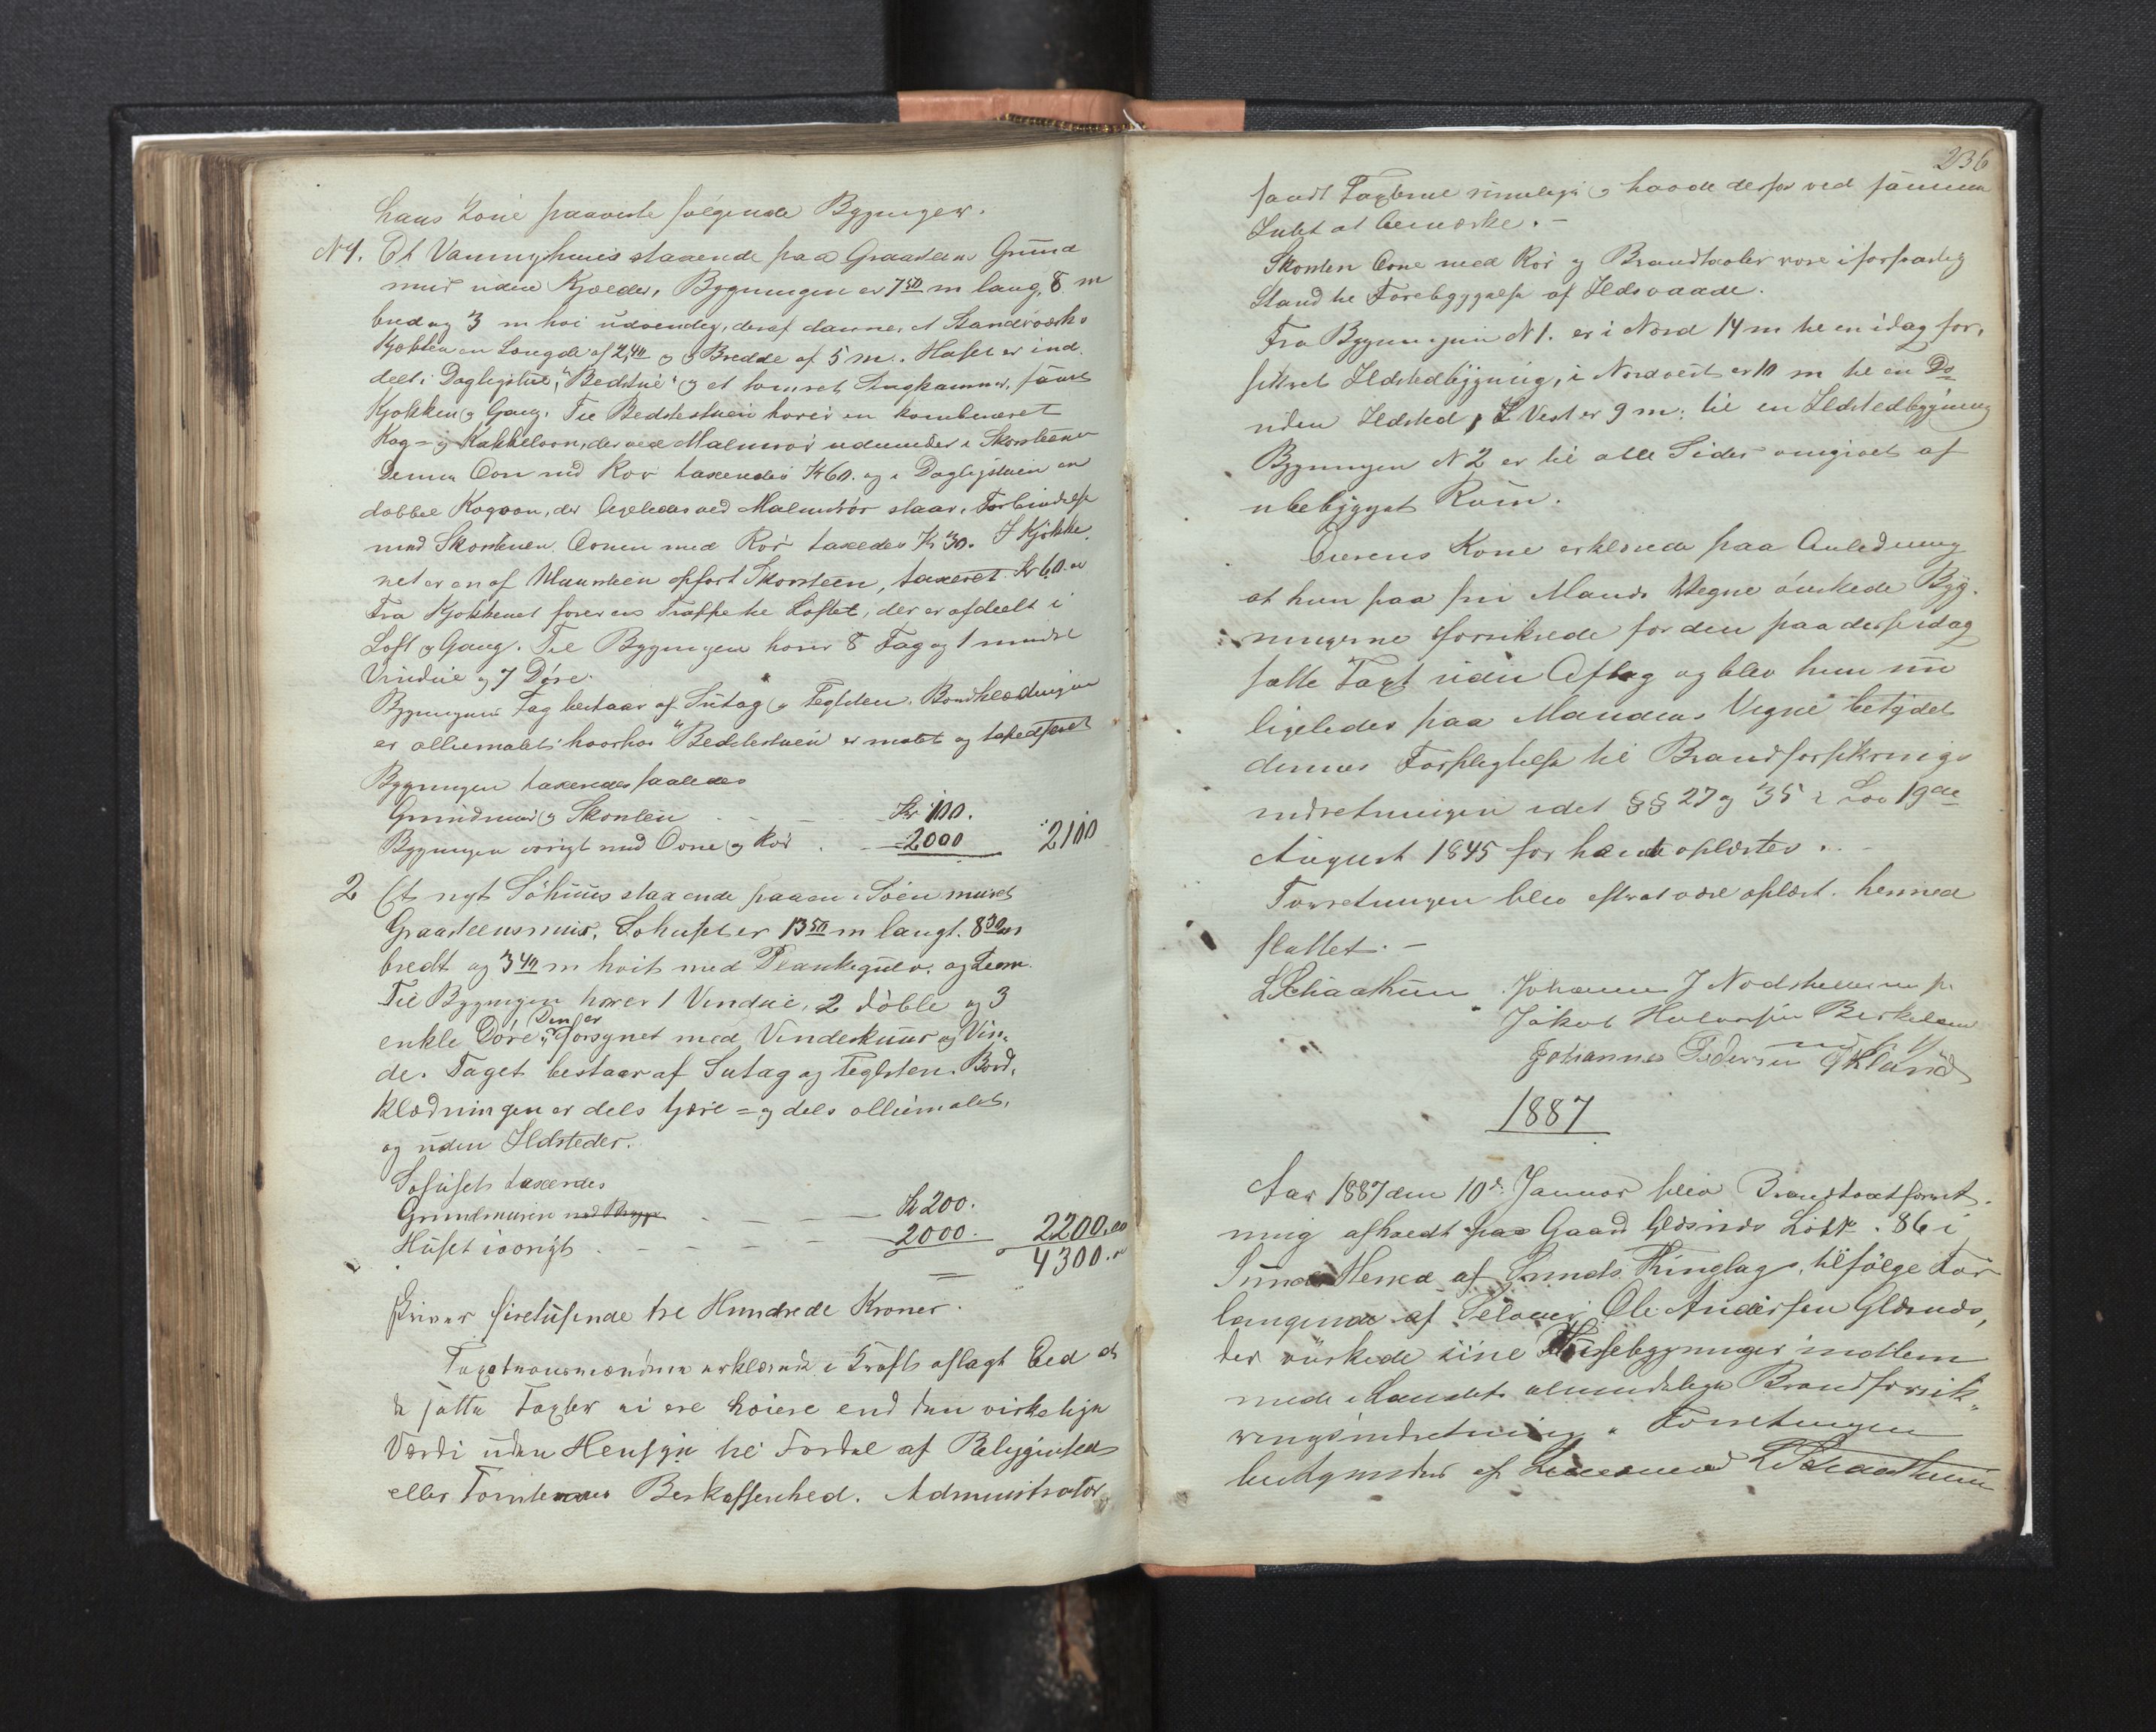 hans Kone paaviste følgende Bygninger.
N 1. Et Vaaningshuus staaende paa Graasteens Grund
muur uden Kjælder, Bygningen er 7 50 m lang, 8 m
bred og 3 m høi udvendig, deraf danner et Standværks
Kjøkken en Længde af 2,40 og Bredde af 5 m. Huset er ind
deelt i Dagligstue, "Bedstue" og et tømret Sengkammer, samt
Kjøkken og Gang. Til Bedstestuen hører en kombineret
Kog= og Kakkelovn, der ved Malmrør udmunder i Skorstenen
Denne Ovn med Rør taxeredes Kr 60. og i Dagligstuen en
dobbel Kogovn, der ligeledes ved Malmrør staar i Forbindelse
med Skorstenen. Ovnen med Rør taxeredes Kr 30. I Kjøkke
net er en af Muursteen opført Skorsteen, taxeret Kr 60.00
Fra Kjøkkenet fører en Trappe til Loftet, der er afdeelt i
Loft og Gang. Til Bygningen hører 8 Fag og 1 mindre
Vindue og 7 Døre.
Bygningens Tag bestaar af Sutag og Teglsten. Bordklædningen
er olliemalet hvorhos "Bedstestuen" er malet og tapedseret
Bygningen taxeredes saaledes
Grundmuur og Skorsten - - - Kr 100.
Bygningen øvrigt med Ovne og Rør . - 2000 2100
2 Et nyt Søhuus staaende paa en i Søen muret
Graasteensmuur. Søhuset er 13 50 m langt. 8 30 m
bredt og 3 40 m høit med Plankegulv. og Leem.
Til Bygningen hører 1 Vindue, 2 døble og 3
enkle Døre. Den er forsynet med Vindeskuur og Vin-
de. Taget bestaar af Sutag og Teglsten. Bord,
klædningen er dels tjære= og dels olliemalet,
og uden Ildsteder.
Søhuset taxeredes
Grundmuren med Brygge - - - Kr 200.
Huset iøvrigt - - - - 2000. 2200.00
4300.00
Skriver firetusinde tre Hundrede Kroner.
Taxationsmændene erklærede i Kraft aflagt Eed at
de satte Taxter ei ere høiere end den virkelige
Værdi uden Hensyn til Fordel af Beliggenhed
eller Tomtens Beskaffenhed. Administrator
236
fandt Taxterne rimelige og havde derfor ved samme
Intet at bemærke. -
Skorsten Ovne med Rør og Brandtavler vare i forsvarlig
Stand til Forebyggelse af Ildsvaade.
Fra Bygningen N 1. er i Nord 14 m til en idag for,
sikret Ildstedbygning, i Nordvest er 10 m til en Do
uden Ildsted, I Vest er 9 m. til en Ildstedbygning
Bygningen N 2 er til alle Sider omgivet af
ubebygget Rum.
Eierens Kone erklærede paa Anledning
at hun paa sin Mands Vegne ønskede Byg-
ningerne forsikrede for den paa desse idag
satte Taxt uden Aftag og blev hun nu
ligeledes paa Mandens Vegne betydet
dennes Forpligtelse til Brandforsikrings
indretningen idet §§ 27 og 35 i Lov 19de
August 1845 for hende oplæstes. -
Forretningen blev efter at være oplæst hermed
sluttet. -
L Schaathun Johannes J Nodskeer m p
Jakob Halvorsen Birkeland
m p
Johannes Pedersen Økland
1887
Aar 1887 den 10de Januar blev Brandtaxtforret-
ning afholdt paa Gaard Glesnæs Løbe . 86 i
Sunds Herred af Sunds Thinglag, tilfølge For
langende af Selveier Ole Andersen Glesnæs,
der ønskede sine Huusebygninger indlem
mede i Landets almindelige Brandforsik-
ringsindretning. Forretningen
bestyredes af Lensmand L Schaathun